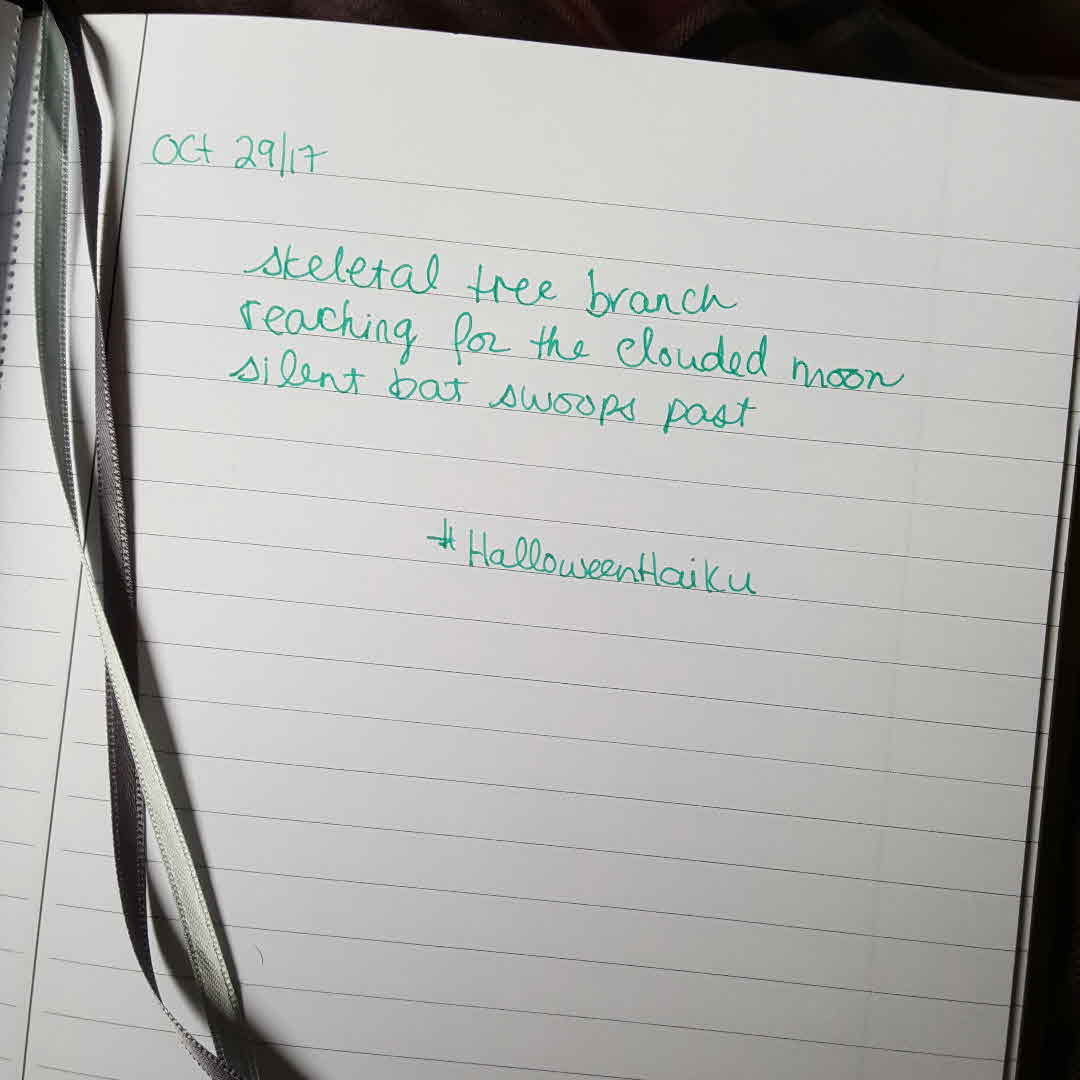 Oct 29/17
skeletal tree branch
reaching for the clouded moon
silent bat swoops past
#HalloweenHaiku